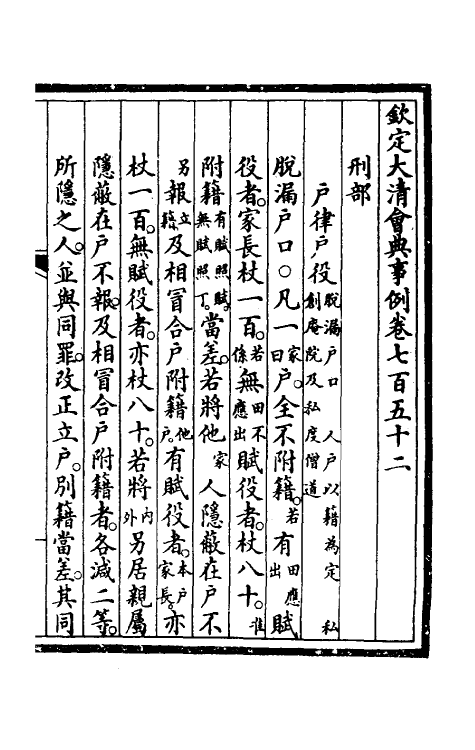 欽定大清會典事例卷七百五十二
刑部
戶律戶役 脫漏戶口 人戶以籍為定 私創庵院及私度僧道
脫漏戶口○凡一家曰戶。全不附籍。若有田應出賦
役者。家長杖一百。若係無田不應出賦役者。杖八十。准
附籍有賦照賦。無賦照丁。當差。若將他家人隱蔽在戶不
另報立籍。及相冒合戶附籍他戶。有賦役者。本戶家長。亦
杖一百。無賦役者。亦杖八十。若將內外另居親屬
隱蔽在戶不報。及相冒合戶附籍者。各減二等。
所隱之人。並與同罪。改正立戶。別籍當差。其同